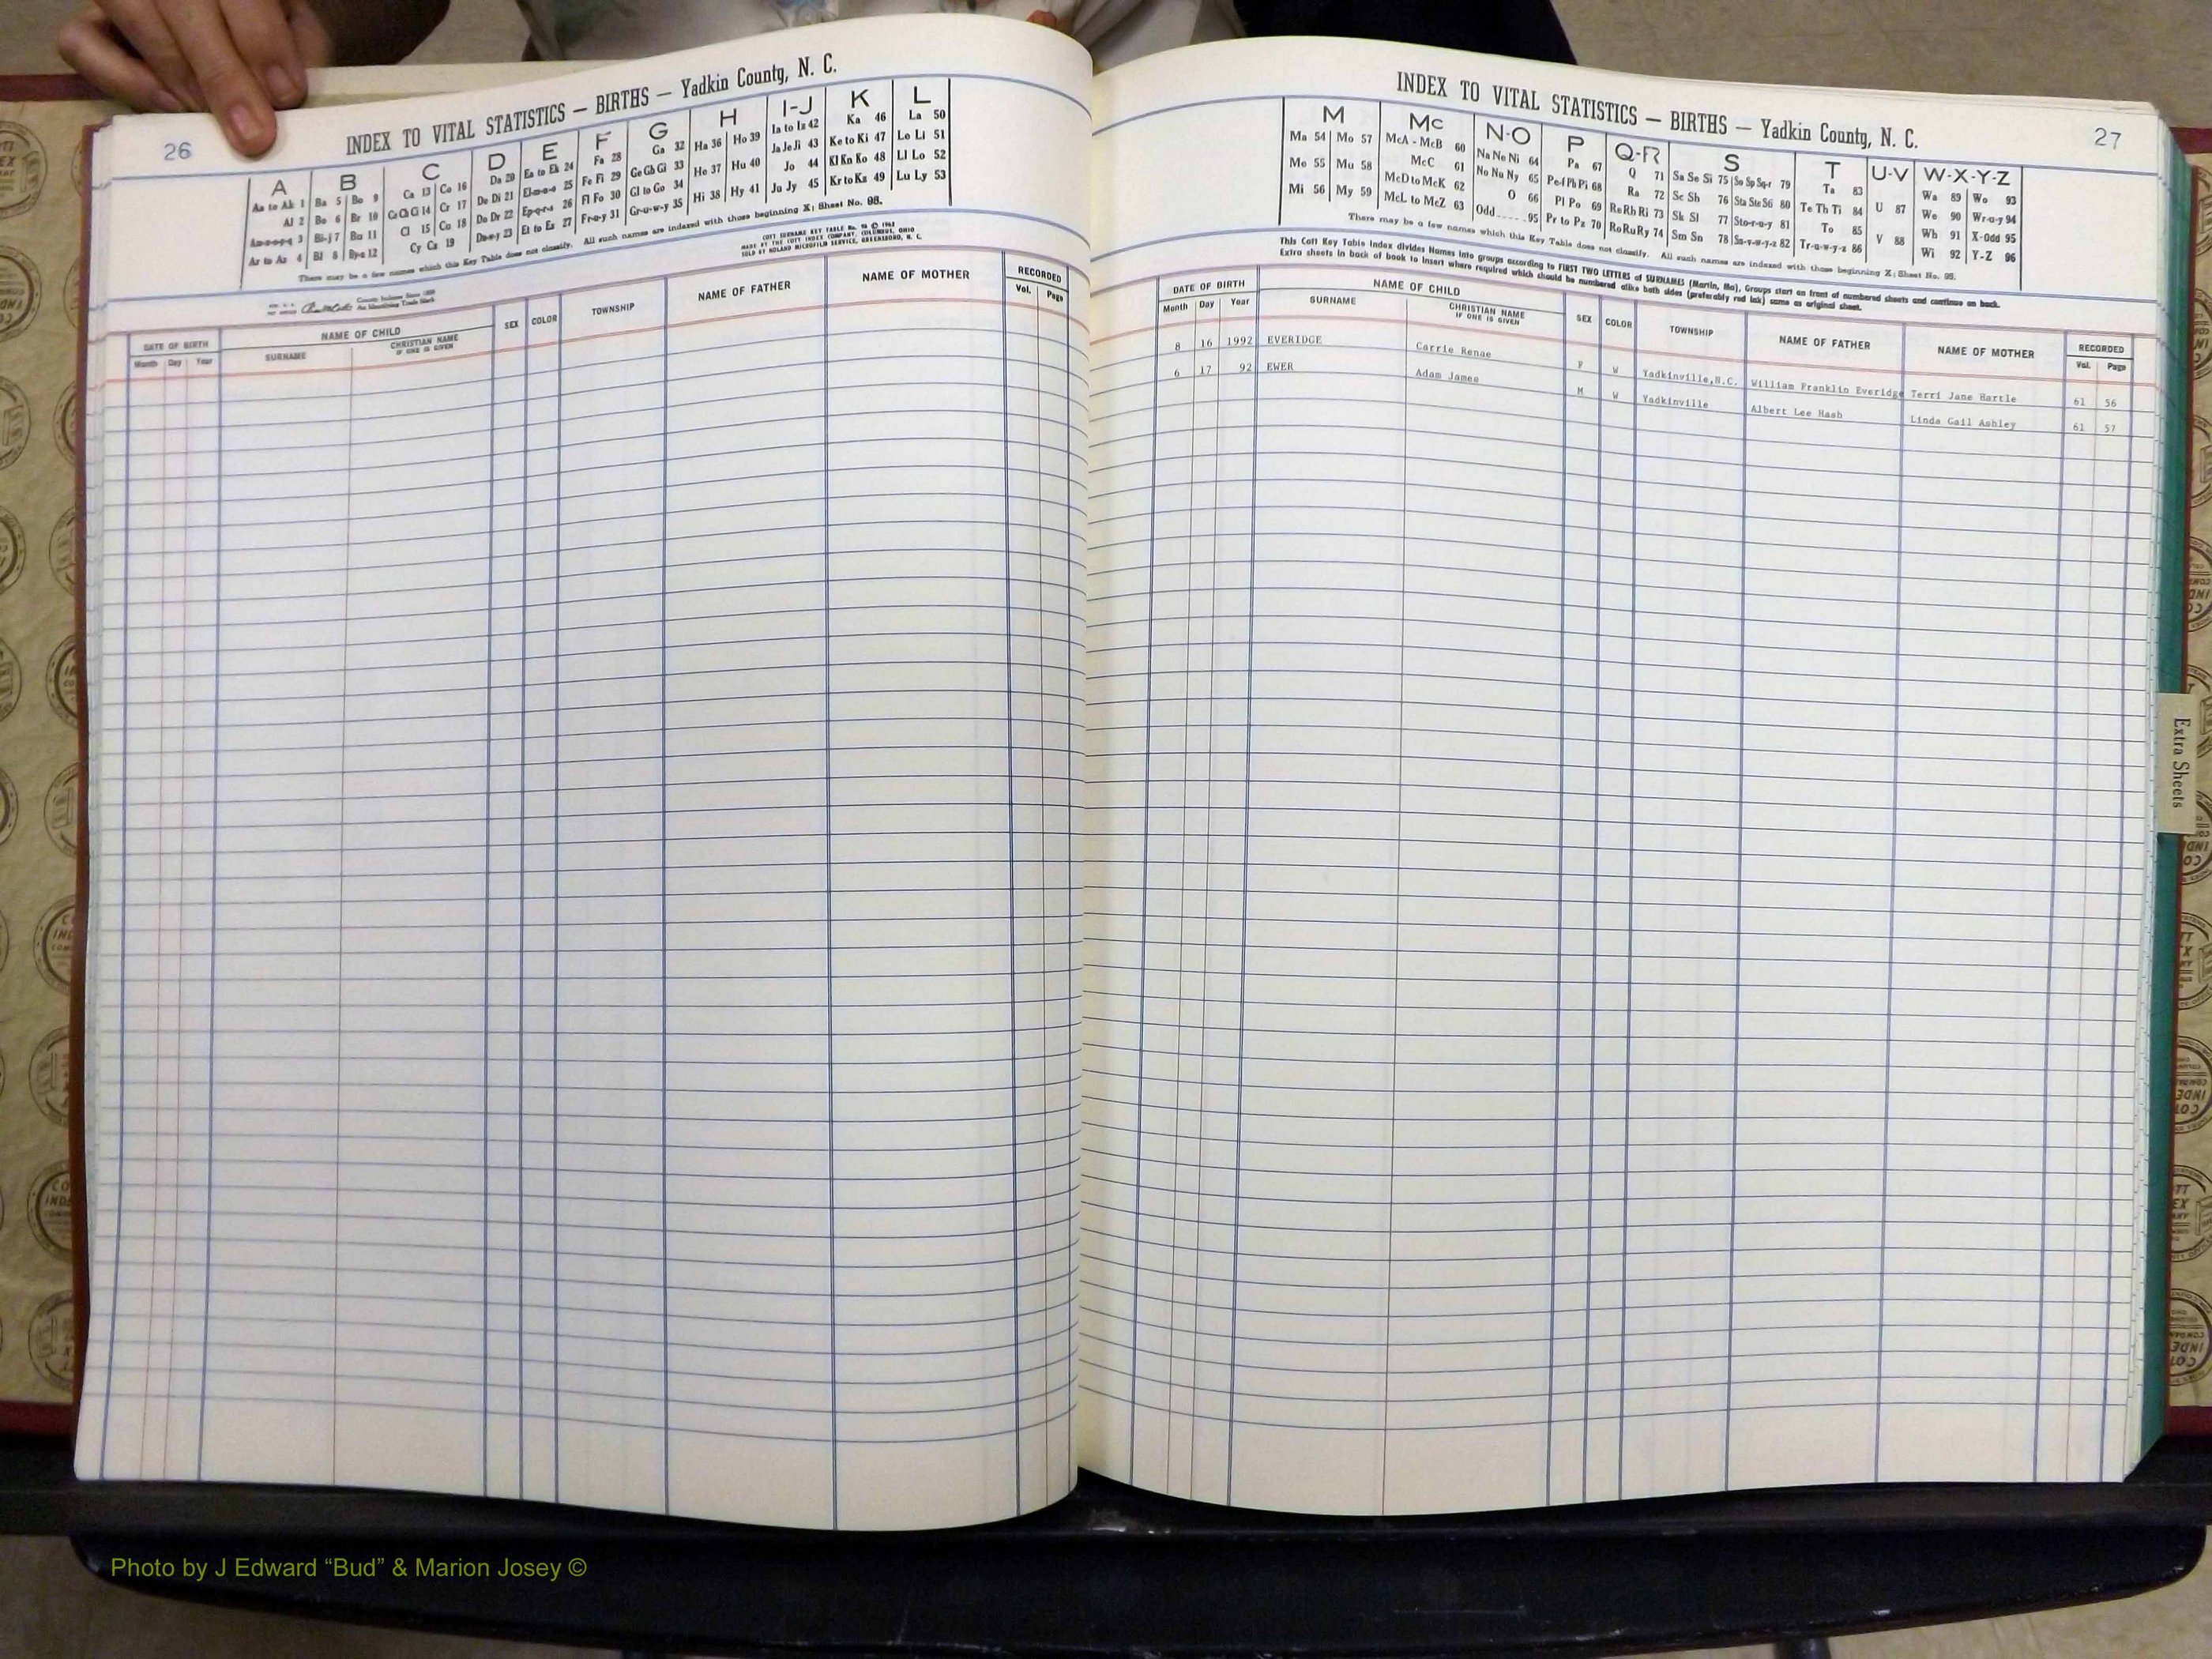 26
INDEX TO VITAL STATISTICS — BIRTHS — Yadkin County, N. C.
A B C D E F G H I-J K L
Aa to Ak 1 Ba 5 Bo 9 Ca 13 Co 16 Da 20 Ea to Ek 24 Fa 28 Ga 32 Ha 36 Ho 39 Ia to Iz 42 Ka 46 La 50
Al 2 Be 6 Br 10 Ce Ch Ci 14 Cr 17 De Di 21 El-m-n-o 25 Fe Fi 29 Ge Gh Gi 33 He 37 Hu 40 Ja Je Ji 43 Ke to Ki 47 Le Li 51
Am-n-o-p-q 3 Bi-j 7 Bu 11 Cl 15 Cu 18 Do Dr 22 Ep-q-r-s 26 Fl Fo 30 Gl to Go 34 Hi 38 Hy 41 Jo 44 Kl Kn Ko 48 Ll Lo 52
Ar to Az 4 Bl 8 By-z 12 Cy Cz 19 Du-w-y 23 Et to Ez 27 Fr-u-y 31 Gr-u-w-y 35 Ju Jy 45 Kr to Kz 49 Lu Ly 53
There may be a few names which this Key Table does not classify. All such names are indexed with those beginning X; Sheet No. 95.
COTT SURNAME KEY TABLE
MADE BY THE COTT INDEX COMPANY, COLUMBUS, OHIO
SOLD BY NOLAND MICROFILM SERVICE, GREENSBORO, N. C.
County Indexes Since 1888
An Identifying Trade Mark
DATE OF BIRTH NAME OF CHILD SEX COLOR TOWNSHIP NAME OF FATHER NAME OF MOTHER RECORDED
Month Day Year SURNAME CHRISTIAN NAME IF ONE IS GIVEN Vol. Page
INDEX TO VITAL STATISTICS — BIRTHS — Yadkin County, N. C.
27
M Mc N-O P Q-R S T U-V W-X-Y-Z
Ma 54 Mo 57 McA - McB 60 Na Ne Ni 64 Pa 67 Q 71 Sa Se Si 75 So Sp Sq-r 79 Ta 83 U 87 Wa 89 Wo 93
Me 55 Mu 58 McC 61 No Nu Ny 65 Pe-f Ph Pi 68 Ra 72 Sc Sh 76 Sta Ste Sti 80 Te Th Ti 84 V 88 We 90 Wr-u-y 94
Mi 56 My 59 McD to McK 62 O 66 Pl Po 69 Re Rh Ri 73 Sk Sl 77 Sto-r-u-y 81 To 85 Wh 91 X-Odd 95
McL to McZ 63 Odd 95 Pr to Pz 70 Ro Ru Ry 74 Sm Sn 78 Su-v-w-y-z 82 Tr-u-w-y-z 86 Wi 92 Y-Z 96
There may be a few names which this Key Table does not classify. All such names are indexed with those beginning X; Sheet No. 95.
This Cott Key Table Index divides Names into groups according to FIRST TWO LETTERS of SURNAMES (Martin, Ma), Groups start on front of numbered sheets and continue on back.
Extra sheets in back of book to insert where required which should be numbered alike both sides (preferably red ink) same as original sheet.
DATE OF BIRTH NAME OF CHILD SEX COLOR TOWNSHIP NAME OF FATHER NAME OF MOTHER RECORDED
Month Day Year SURNAME CHRISTIAN NAME IF ONE IS GIVEN Vol. Page
8 16 1992 EVERIDGE Carrie Renae F W Yadkinville,N.C. William Franklin Everidge Terri Jane Hartle 61 56
6 17 92 EWER Adam James M W Yadkinville Albert Lee Hash Linda Gail Ashley 61 57
Extra Sheets
Photo by J Edward “Bud” & Marion Josey ©